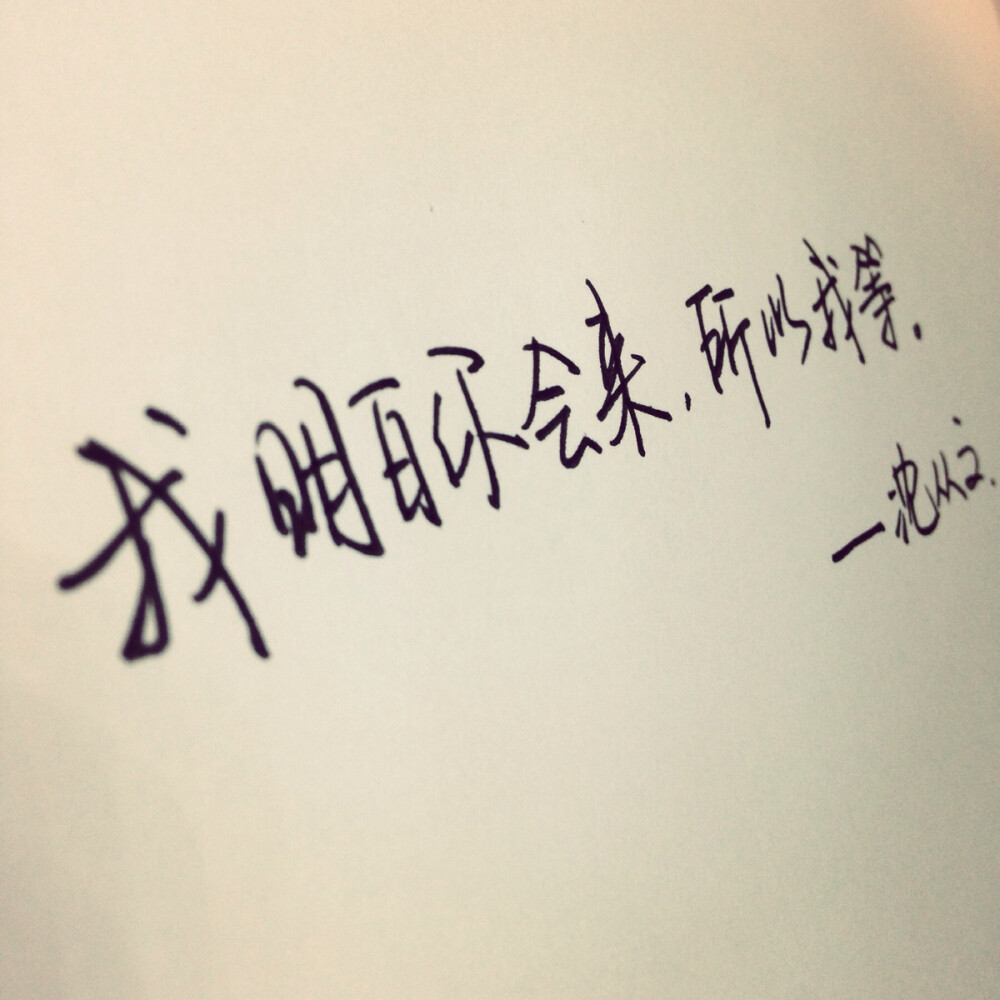 我明白你会来,所以我等.
—沈从文.